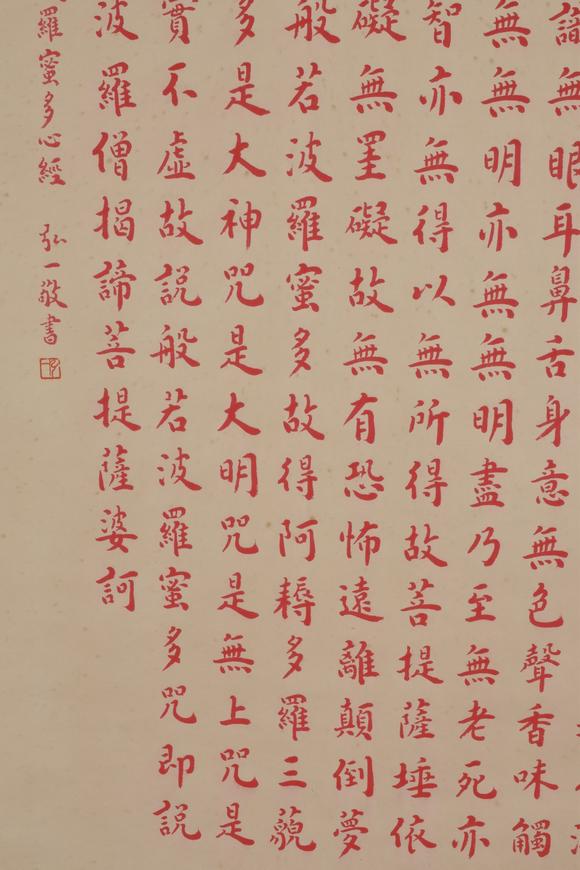 識無眼耳鼻舌身意無色聲香味觸
無無明亦無無明盡乃至無老死亦
智亦無得以無所得故菩提薩埵依
礙無罣礙故無有恐怖遠離顛倒夢
般若波羅蜜多故得阿耨多羅三藐
多是大神咒是大明咒是無上咒是
實不虛故説般若波羅蜜多咒即説
波羅僧揭諦菩提薩婆訶
羅蜜多心經 弘一敬書